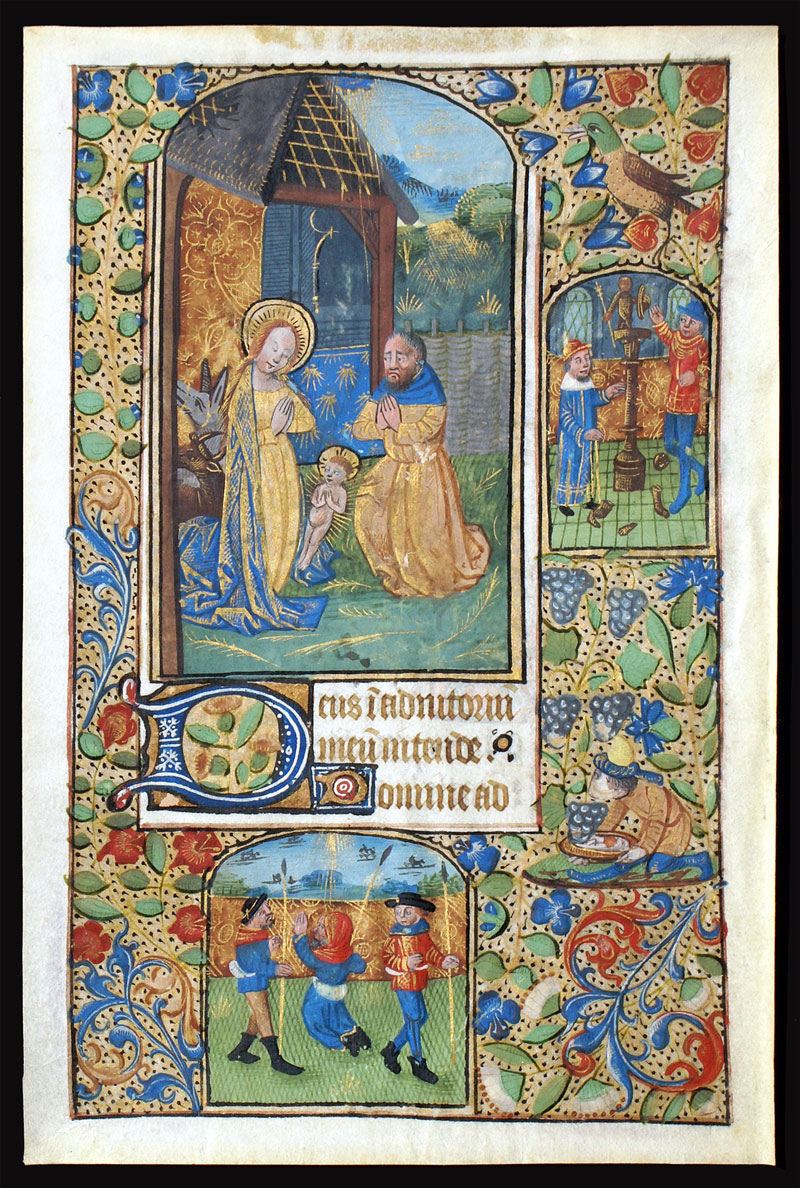 Deus ī adiutoriū
meū intende.
Domine ad